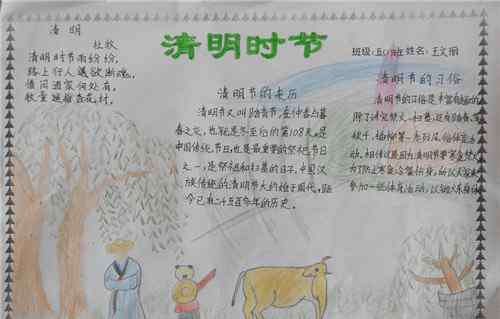 清明时节
班级:五(1)班 姓名:王文丽
清明
杜牧
清明时节雨纷纷,
路上行人
借问酒家何处有,
牧童遥指杏花村。
清明节的来历
清明节又叫踏青节,在仲春与
暮春之交,也就是冬至后的第108天。是
中国传统节日,也是最重要的祭祀节日
之一,是祭祖和扫墓的日子。中国汉
族传统的清明节大约始于周代,距
今已有二千五百多年的历史。
清明节的习俗
清明节的习俗是丰富有趣的
除了讲究禁火、扫墓,还有踏青、荡
秋千、
动。相传这是因为清明节要寒食禁火
为了防止寒食冷餐伤身,所以大家来
参加一些体育活动,以锻炼身体